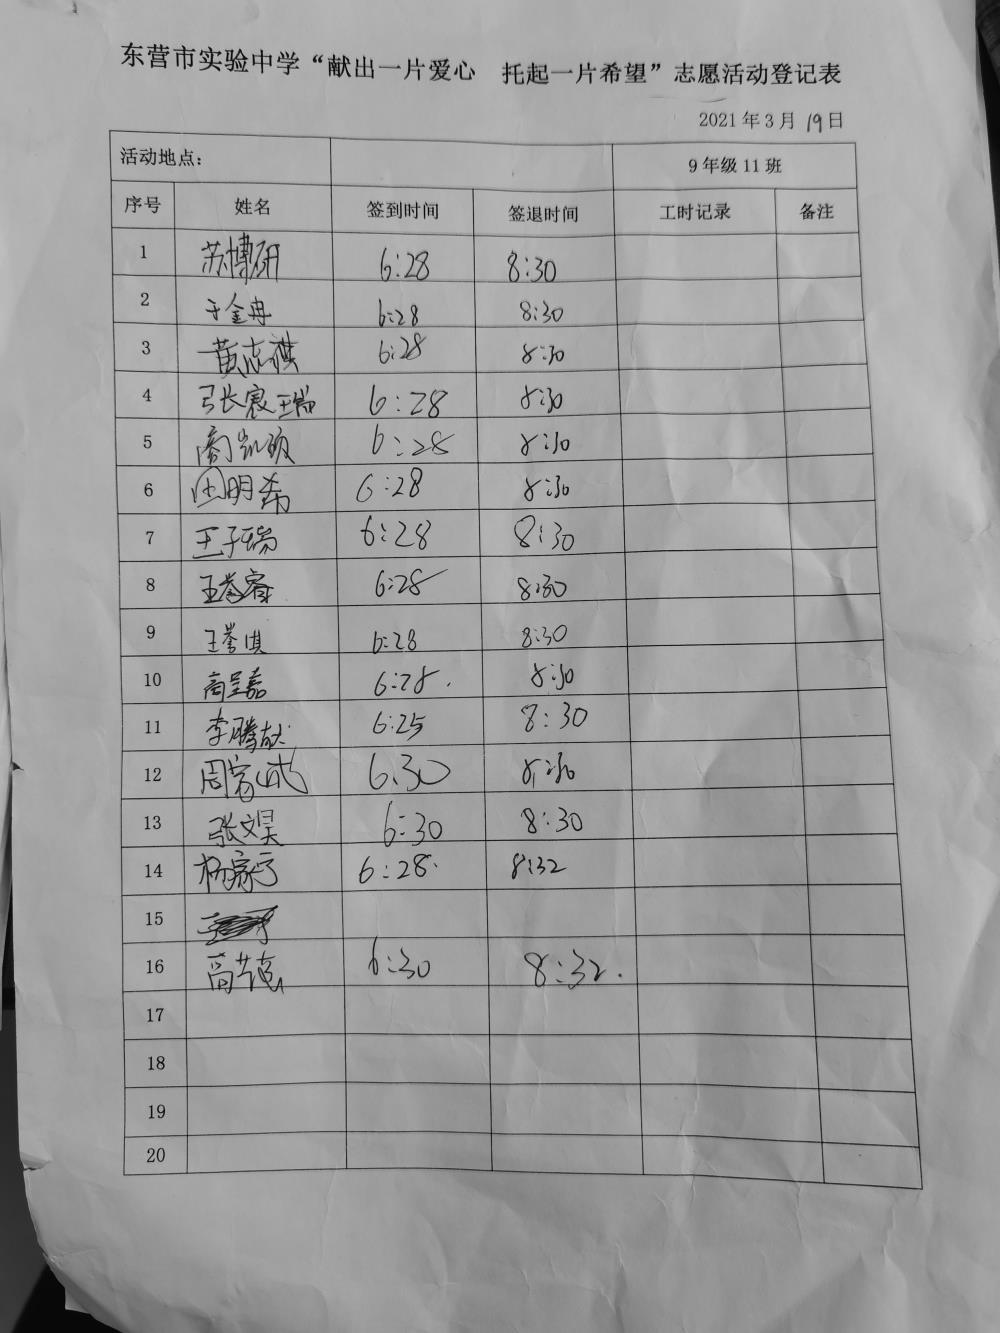 东营市实验中学“献出一片爱心 托起一片希望”志愿活动登记表
2021年3月19日
活动地点： 9年级11班
序号 姓名 签到时间 签退时间 工时记录 备注
1 苏博研 6:28 8:30
2 于金冉 6:28 8:30
3 黄志祺 6:28 8:30
4 张宸瑞 6:28 8:30
5 商凯 6:28 8:30
6 田明希 6:28 8:30
7 王子瑞 6:28 8:30
8 王誉睿 6:28 8:30
9 王誉淇 6:28 8:30
10 商呈嘉 6:28. 8:30
11 李腾献 6:25 8:30
12 周家 6.30 8:30
13 张文昊 6:30 8:30
14 杨家 6:28. 8:32
15
16 高 6:30 8:32.
17
18
19
20